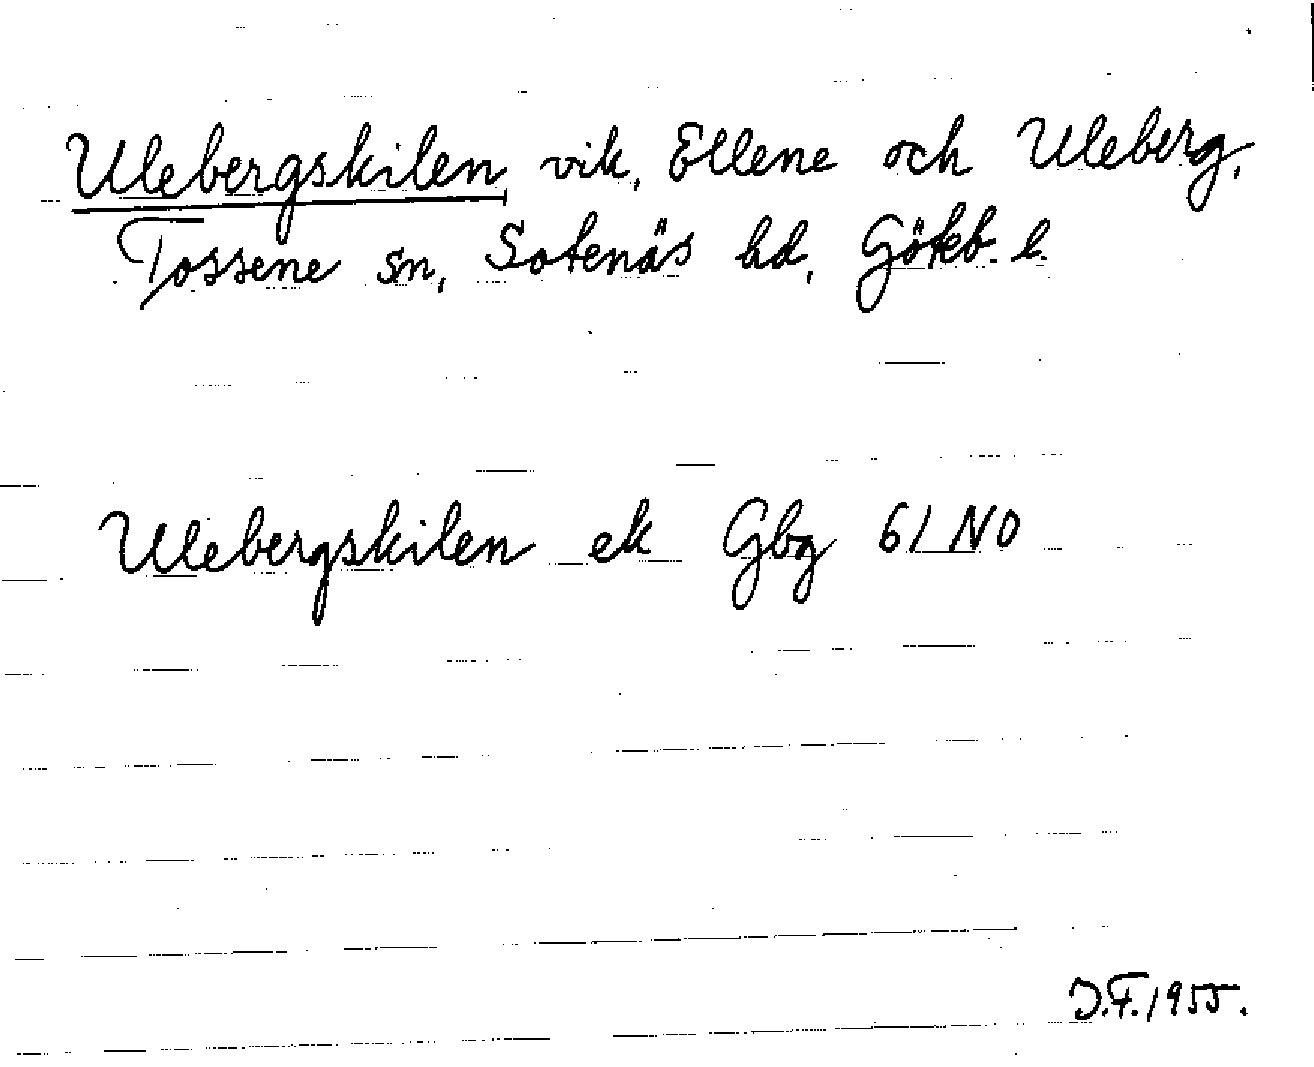 Ulebergskilen, vik, Ellene och Uleberg,
Tossene sn, Sotenäs hd, Göteb. l.
Ulebergskilen ek Gbg 61 NO
J.F. 1955.